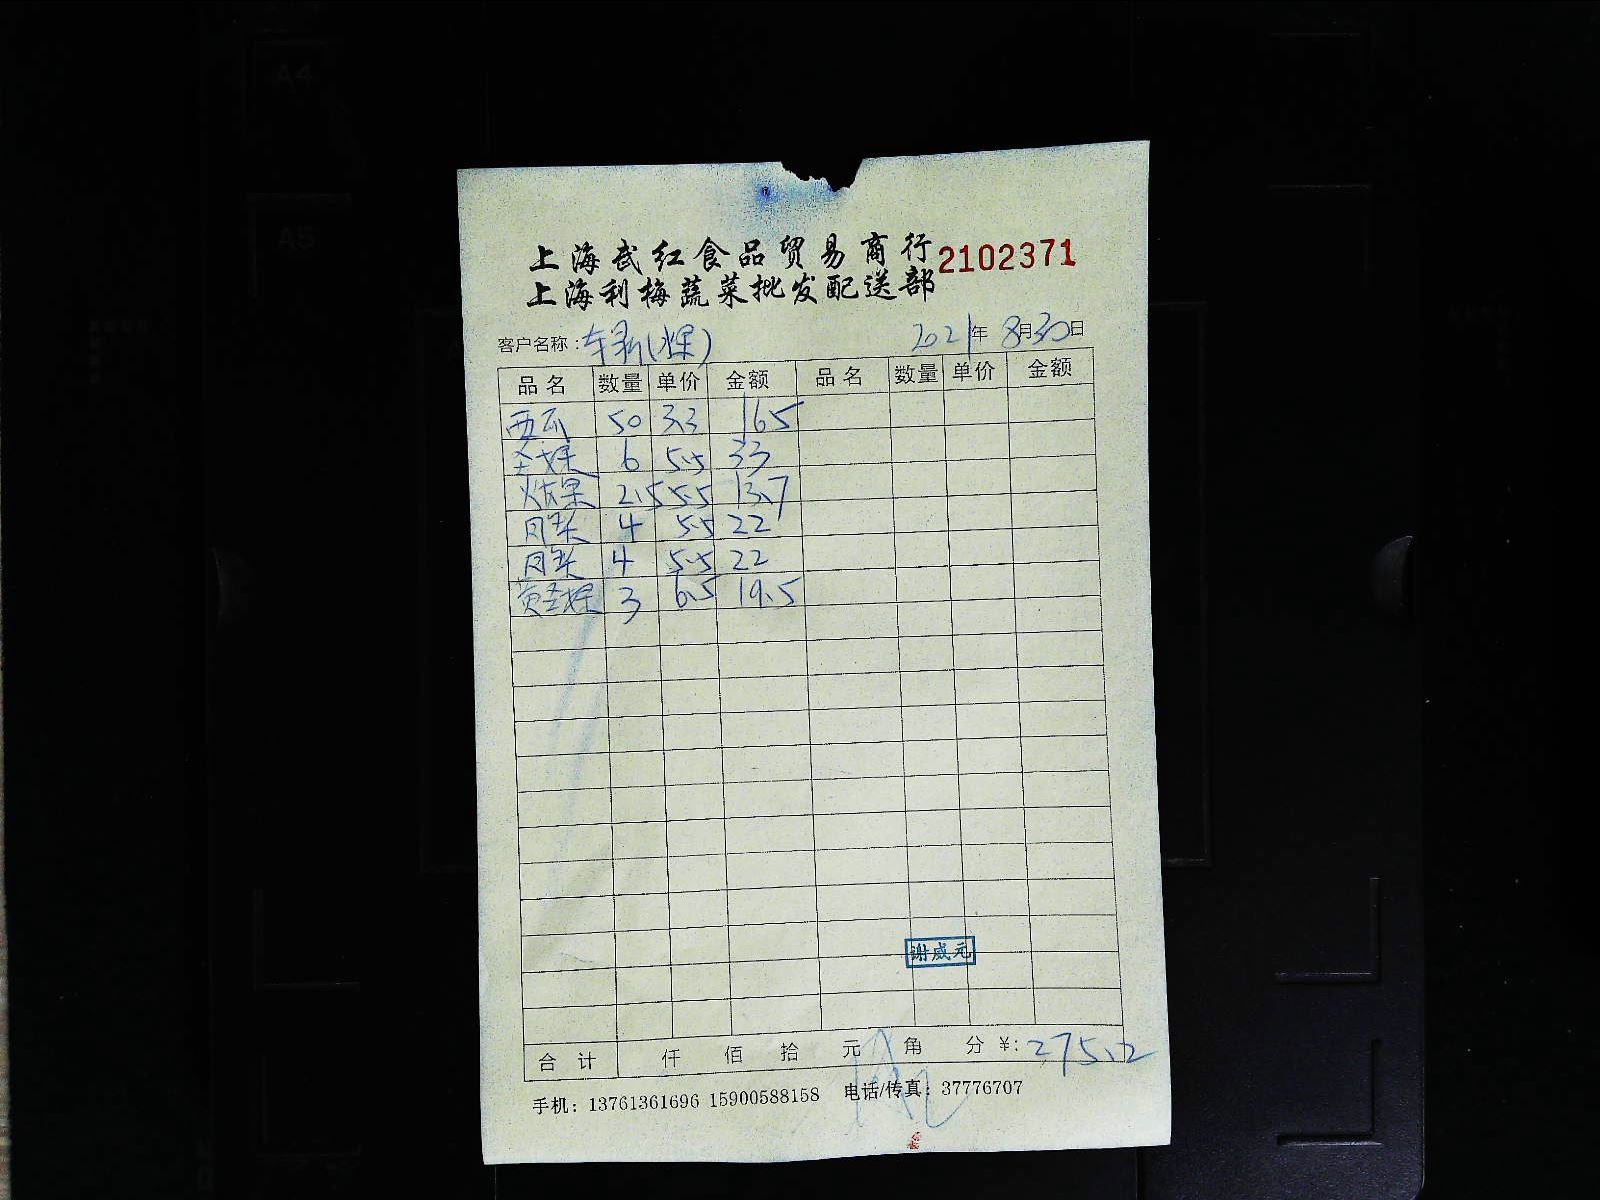 A4
A5
上海武红食品贸易商行 2102371
上海利梅蔬菜批发配送部
客户名称： (水果) 2021年 8月30日
品名 数量 单价 金额 品名 数量 单价 金额
西瓜 50 3.3 165
圣女果 6 5.5 33
火龙果 2.5 5.5 13.7
4 5.5 22
4 5.5 22
黄圣女果 3 6.5 19.5
谢威元
合计 仟 佰 拾 元 角 分 ¥: 275.2
手机：13761361696 15900588158 电话/传真：37776707